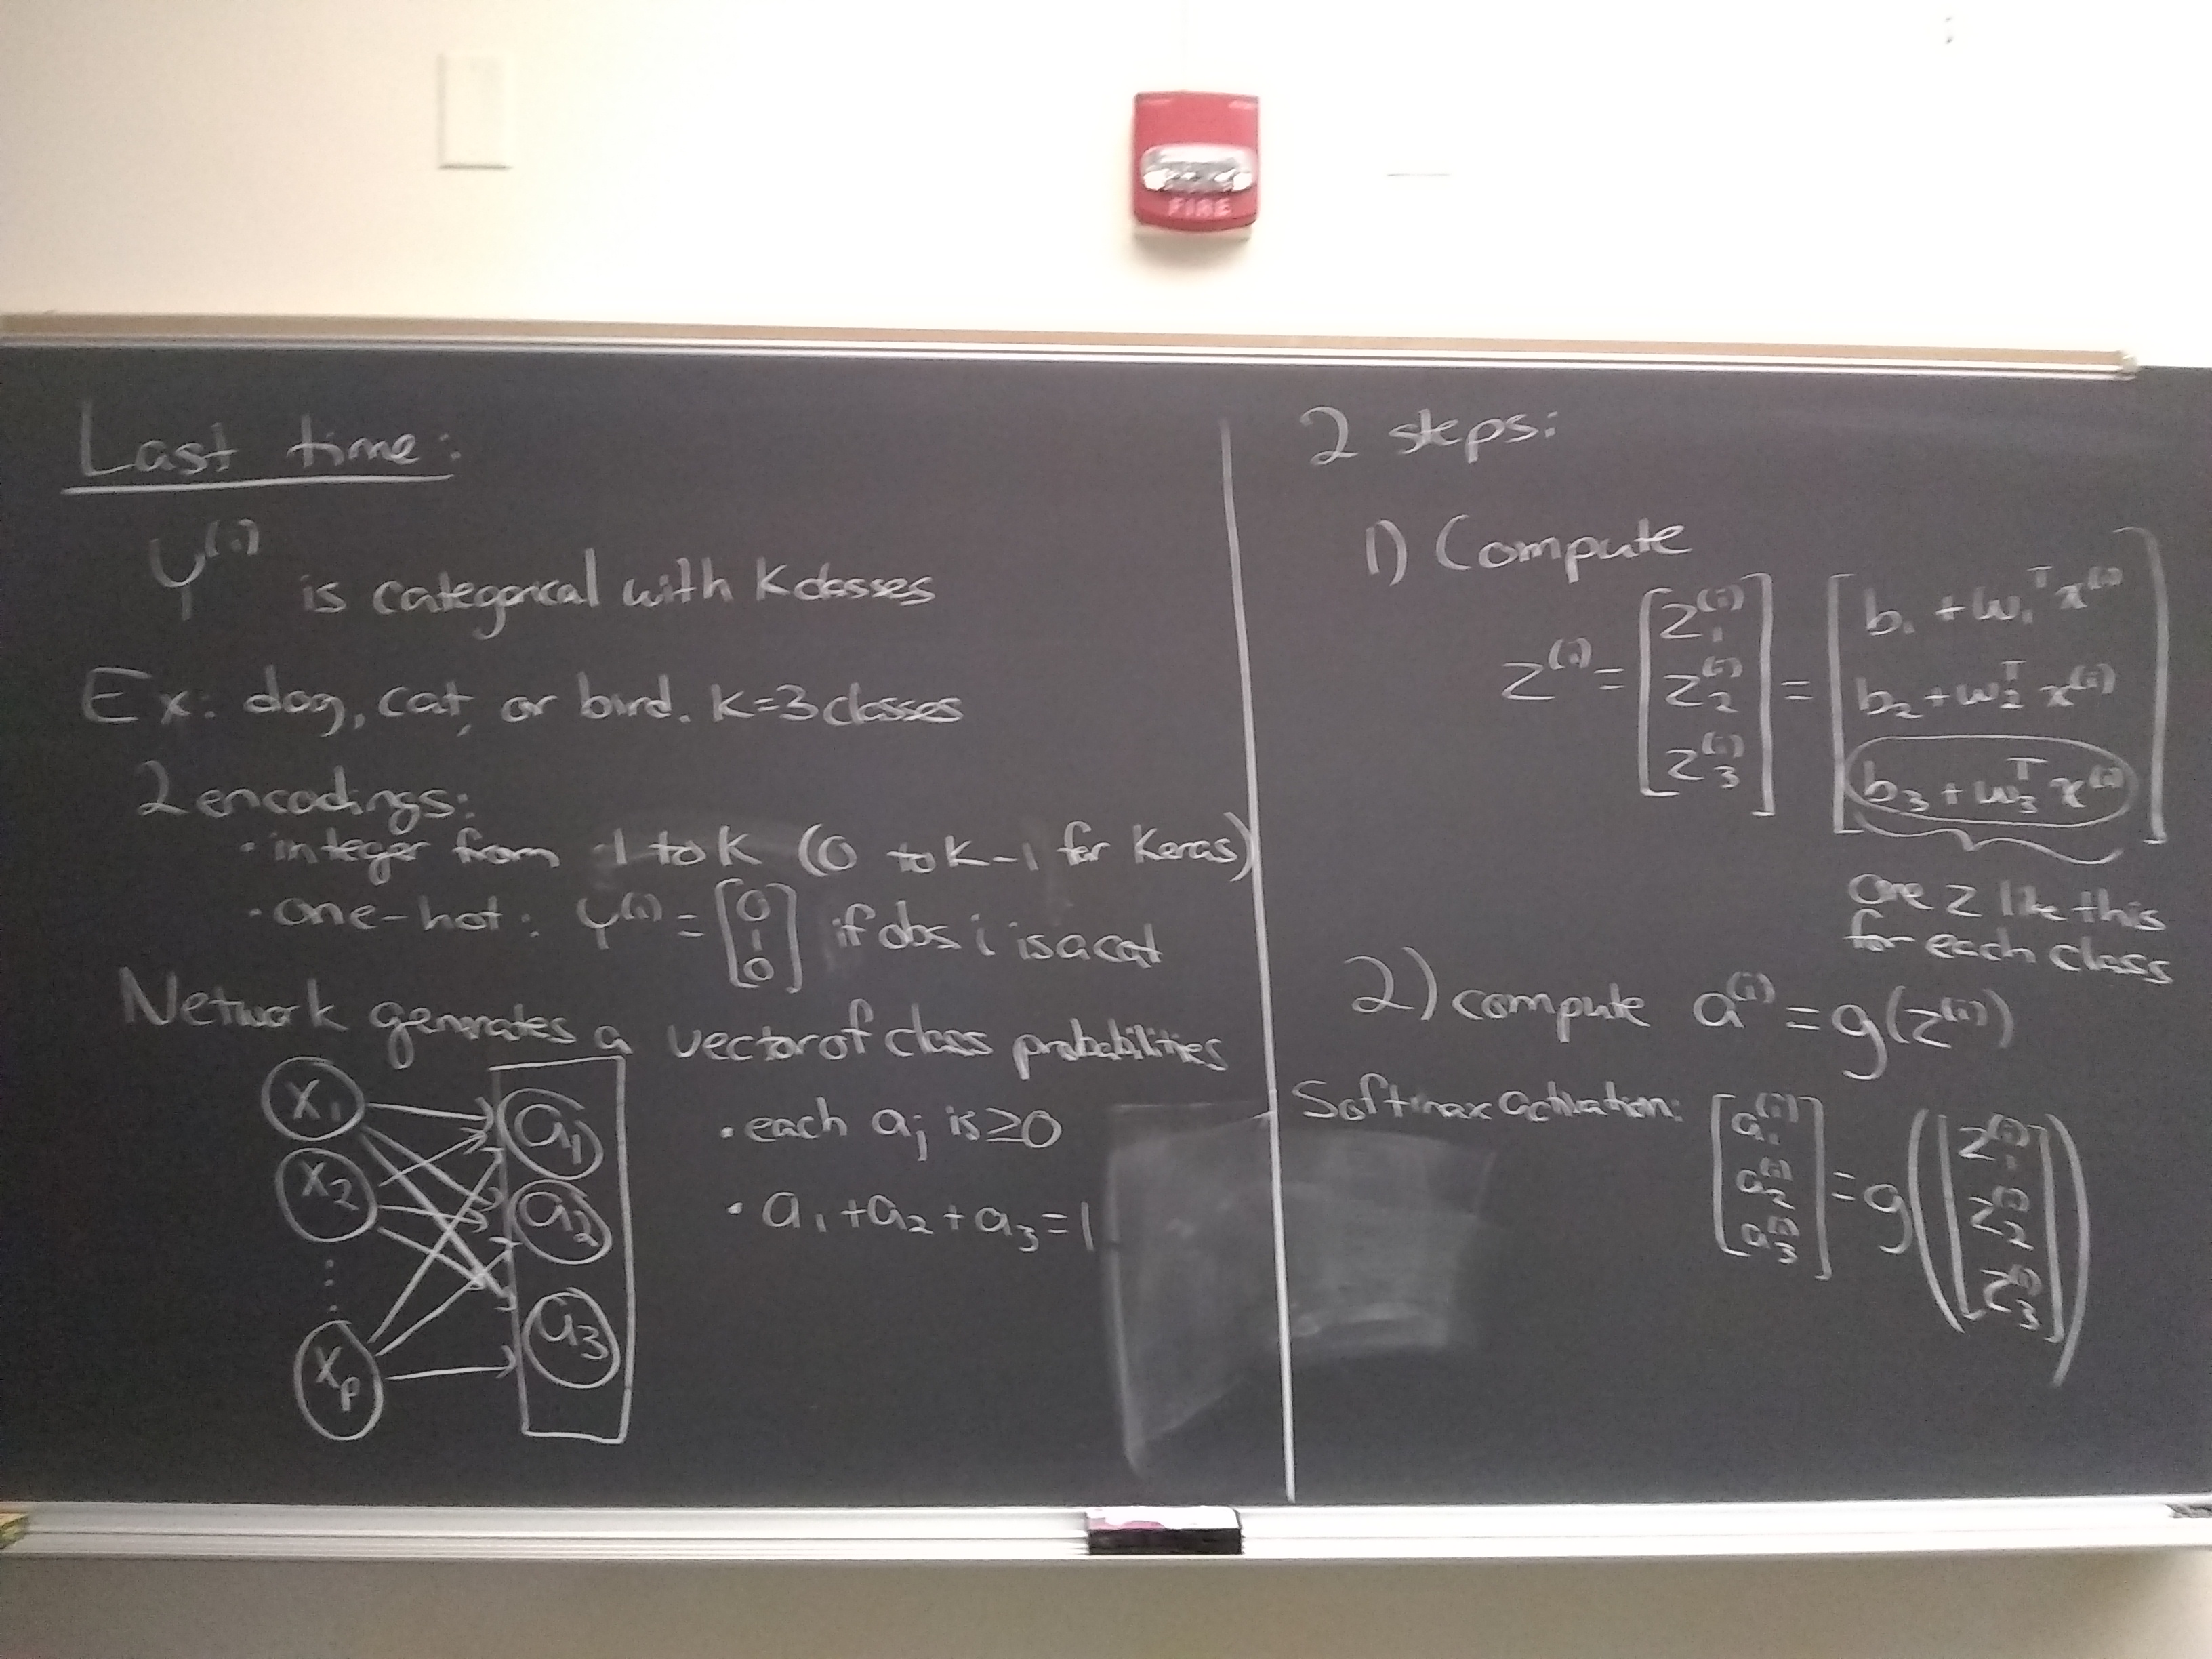 FIRE
Last time:
y⁽ⁱ⁾ is categorical with K classes
Ex: dog, cat, or bird. K=3 classes
2 encodings:
· integer from 1 to K (0 to K-1 for Keras)
· one-hot: y⁽ⁱ⁾ = [0 1 0] if obs i is a cat
Network generates a vector of class probabilities
x₁ a₁
x₂ a₂
⋮
xₚ a₃
· each aⱼ is ≥0
· a₁+a₂+a₃=1
2 steps:
1) Compute
z⁽ⁱ⁾ = [z₁⁽ⁱ⁾ z₂⁽ⁱ⁾ z₃⁽ⁱ⁾] = [b₁+w₁ᵀx⁽ⁱ⁾ b₂+w₂ᵀx⁽ⁱ⁾ b₃+w₃ᵀx⁽ⁱ⁾]
one z like this
for each class
2) compute a⁽ⁱ⁾ = g(z⁽ⁱ⁾)
Softmax activation: [a₁⁽ⁱ⁾ a₂⁽ⁱ⁾ a₃⁽ⁱ⁾] = g([z₁⁽ⁱ⁾ z₂⁽ⁱ⁾ z₃⁽ⁱ⁾])